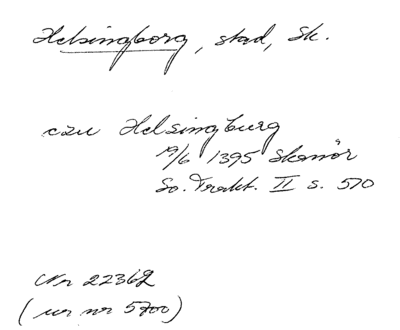 Helsingborg, stad, Sk.
czu Helsingburg
19/6 1395 Skanör
Sv. Trakt. II s. 570
Nr 22362
(ur nr 5700)